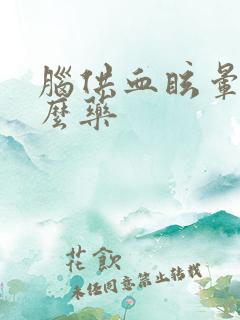 腦供血眩暈
麼藥
花飲
未经同意禁止转载